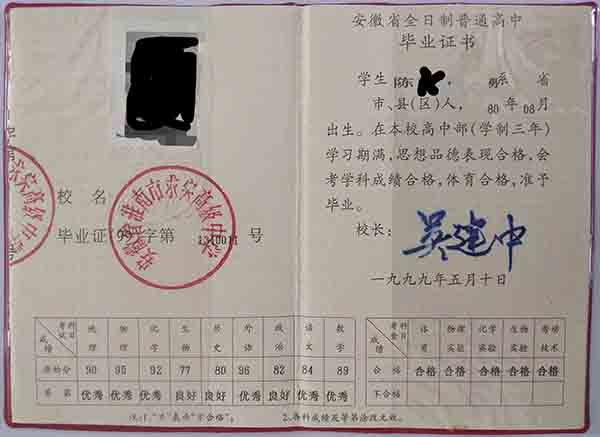 校名
毕业证(99)字第1310011号
安徽省淮南市求实高级中学
考试科目 地理 物理 化学 生物 历史 外语 政治 语文 数学
成绩
原始分 90 95 92 77 80 96 82 84 89
等第 优秀 优秀 优秀 良好 良好 优秀 良好 良好 优秀
安徽省全日制普通高中
毕业证书
学生陈东，男系 省
市、县(区)人，80年08月
出生。在本校高中部(学制三年)
学习期满，思想品德表现合格，会
考学科成绩合格，体育合格，准予
毕业。
校长：吴建中
一九九九年五月十日
考查科目 体育 物理实验 化学实验 生物实验 劳动技术
成绩
合格 合格 合格 合格 合格 合格
不合格
2.各科成绩及等第涂改无效。